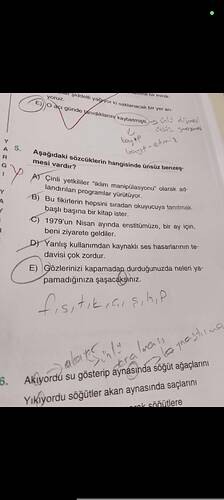 yoruz.
E) O acı günde tanıdıklarını kaybetmişti.
5. Aşağıdaki sözcüklerin hangisinde ünsüz benzeş-
mesi vardır?
A) Çinli yetkililer "iklim manipülasyonu" olarak ad-
landırılan programlar yürütüyor.
B) Bu fikirlerin hepsini sıradan okuyucuya tanıtmak
başlı başına bir kitap ister.
C) 1979'un Nisan ayında enstitümüze, bir ay için,
beni ziyarete geldiler.
D) Yanlış kullanımdan kaynaklı ses hasarlarının te-
davisi çok zordur.
E) Gözlerinizi kapamadan durduğunuzda neleri ya-
pamadığınıza şaşacaksınız.
f, s, t, k, ç, ş, h, p
6. Akıyordu su gösterip aynasında söğüt ağaçlarını
Yıkıyordu söğütler akan aynasında saçlarını
söğütlere